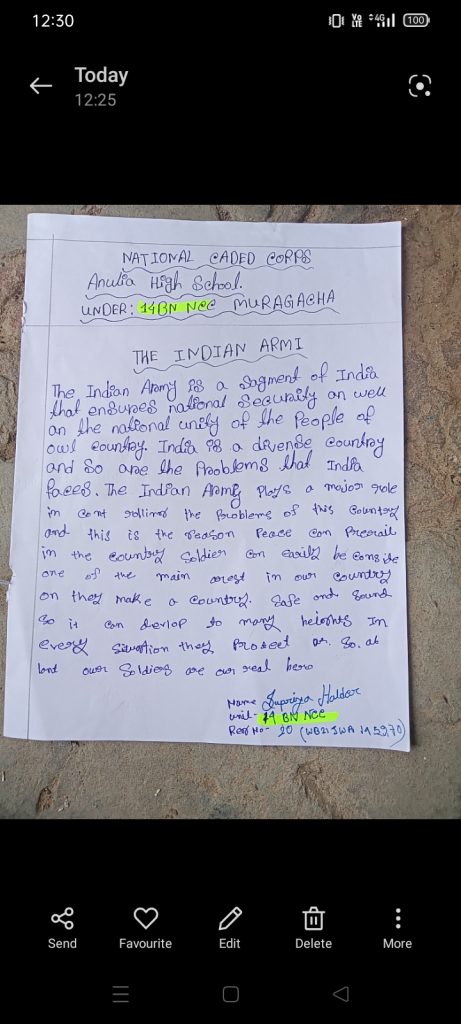 12:30
Vo LTE 4G 100
Today
12:25
NATIONAL CADED CORPS
Anulia High School.
UNDER: 14BN NCC MURAGACHA
THE INDIAN ARMI
The Indian Army is a sagment of India
that ensures national security an well
an the national unity of the People of
owl country. India is a diverse country
and so are the Problems that India
faces. The Indian Army Plays a major role
in cont rolling the Problems of this country
and this is the reason Peace can Prevail
in the country Soldier can easily be conside
one of the main arest in our country
on they make a country. Safe and Sound
so it can devlop to many heights In
every situation they Protect as. So. at
last our Soldiers are our real hero
Name Supriya Halder
Unit- 14 BN NCC
Red No- 20
Send
Favourite
Edit
Delete
More